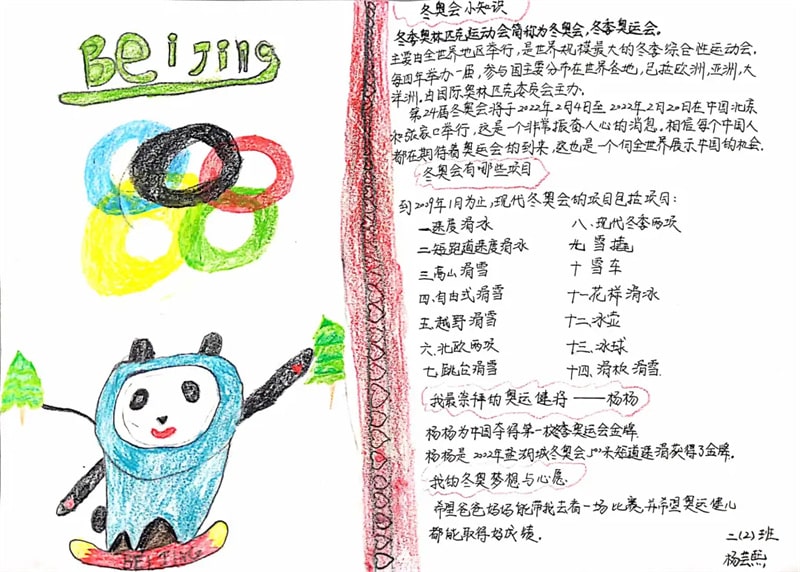 Beijing
BEIJING
冬奥会小知识
冬季奥林匹克运动会简称为冬奥会,冬季奥运会。
主要由全世界地区举行,是世界规模最大的冬季综合性运动会,
每四年举办一届,参与国主要分布在世界各地,包括欧洲,亚洲,大
洋洲,由国际奥林匹克委员会主办.
第24届冬奥会将于2022年2月4日至2022年2月20日在中国北京
和张家口举行,这是一个非常振奋人心的消息,相信每个中国人
都在期待着奥运会的到来,这也是一个向全世界展示中国的机会.
冬奥会有哪些项目
到2009年1月为止,现代冬奥会的项目包括项目:
一速度滑冰
二短跑道速度滑冰
三高山滑雪
四.自由式滑雪
五.越野滑雪
六.北欧两项
七.跳台滑雪
八.现代冬季两项
九 雪橇
十 雪车
十一花样滑冰
十二.冰壶
十三.冰球
十四.滑板滑雪
我最崇拜的奥运健将——杨杨
杨杨为中国夺得第一枚冬季奥运会金牌.
杨杨是2002年盐湖城冬奥会500米短道速滑获得了金牌.
我的冬奥梦想与心愿
希望爸爸妈妈能带我去看一场比赛,并希望奥运健儿
都能取得好成绩.
二(2)班
杨芸熙